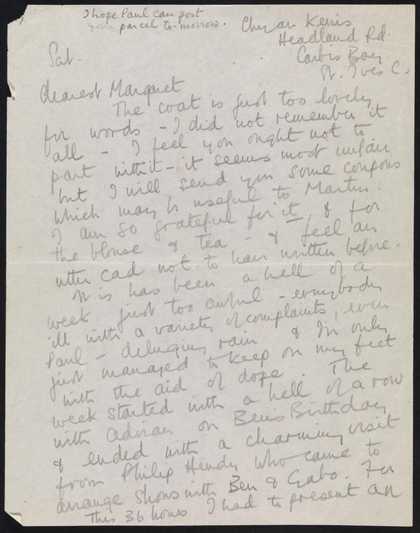 I hope Paul can post
your parcel to-morrow.
Chy an Kerris
Headland Rd.
Carbis Bay
St. Ives C.
Sat.
dearest Margaret
The coat is just too lovely
for words - I did not remember it
all - I feel you ought not to
part with it - it seems most unfair
but I will send you some coupons
which may be useful to Martin.
I am so grateful for it, & for
the blouse & tea - & feel an
utter cad not to have written before.
It is has been a hell of a
week just too awful - everybody
ill with a variety of complaints, even
Paul - deluging rain & I'm only
just managed to keep on my feet
with the aid of dope. The
week started with a hell of a row
with Adrian on Ben's Birthday
& ended with a charming visit
from Philip Hendy who came to
arrange shows with Ben & Gabo. For
this 36 hours I had to present an